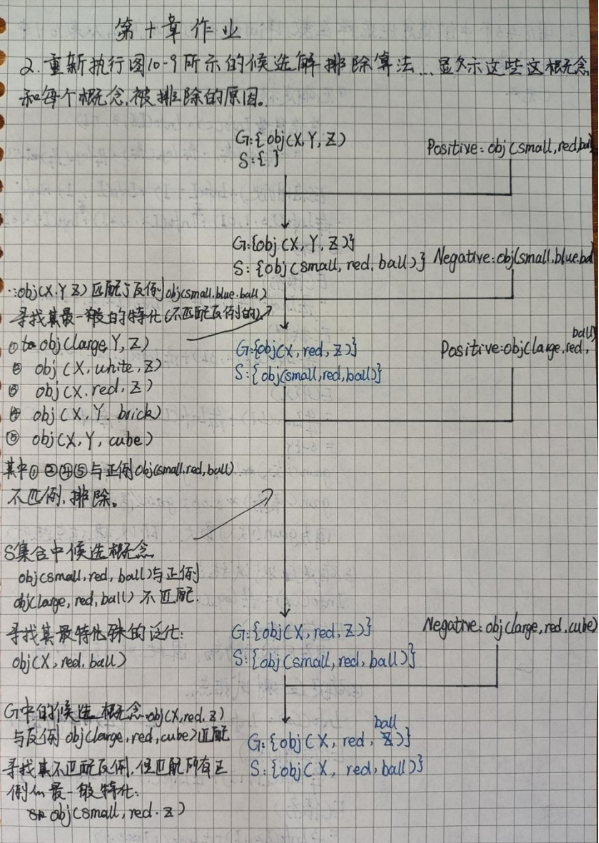 第十章作业
2.重新执行图10-9所示的候选解排除算法...显示这些这概念
和每个概念,被排除的原因.
G:{obj(X,Y,Z)
S:{ }
Positive:obj(small,red,ball
G:{obj(X,Y,Z)}
S:{obj(small,red,ball)}
Negative:obj(small.blue.ba
∵obj(X,Y Z)匹配了反例obj(small.blue.ball)
寻找其最一般的特化(不匹配反例的)
① obj(large,Y,Z)
② obj(X,white,Z)
③ obj(X,red,Z)
④ obj(X,Y.brick)
⑤ obj(X,Y,cube)
其中①②④⑤与正例obj(small.red,ball)
不匹例,排除。
G:{obj(X,red,Z)}
S:{obj(small,red,ball)}
Positive:obj(large,red, ball
S集合中候选概念
obj(small,red,ball)与正例
obj(large,red,ball)不匹配.
寻找其最特化殊的泛化:
obj(X,red,ball)
G:{obj(X,red,Z)}
S:{obj(small,red,ball)}
Negative:obj(large,red,cube)
G中的候选概念obj(X,red,Z)
与反例obj(large,red,cube)匹配
寻找其不匹配反例,但匹配所有正
例的最一般特化:
obj(small,red.Z)
ball
G:{obj(X,red,Z)}
S:{obj(X,red,ball)}